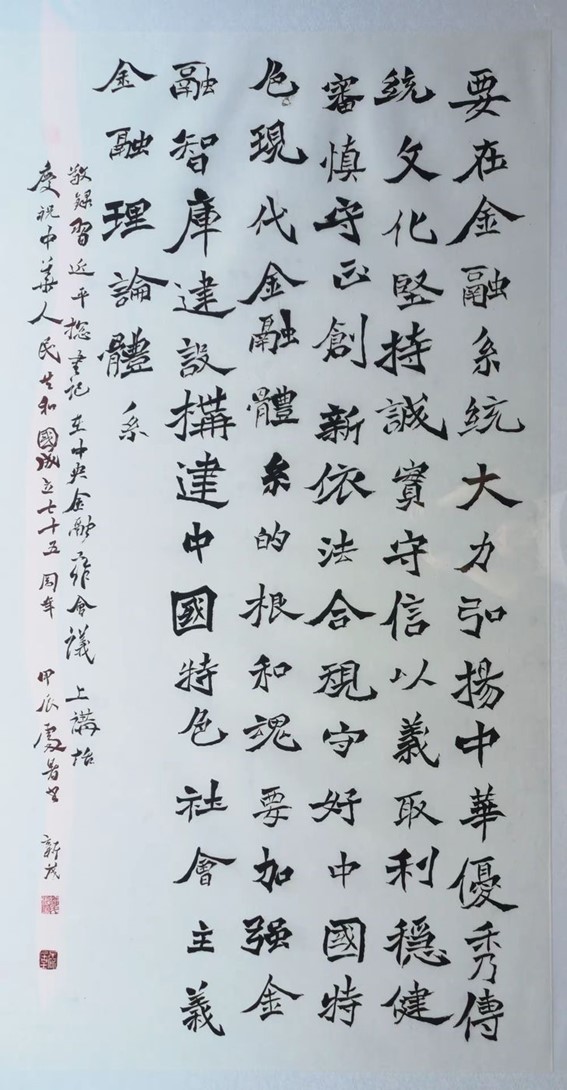 要在金融系統大力弘揚中華優秀傳
統文化堅持誠實守信以義取利穩健
審慎守正創新依法合規守好中國特
色現代金融體系的根和魂要加强金
融智庫建設構建中國特色社會主義
金融理論體系
敬錄習近平總書記在中央金融工作會議上講話
慶祝中華人民共和國成立七十五周年 甲辰處暑書 新茂